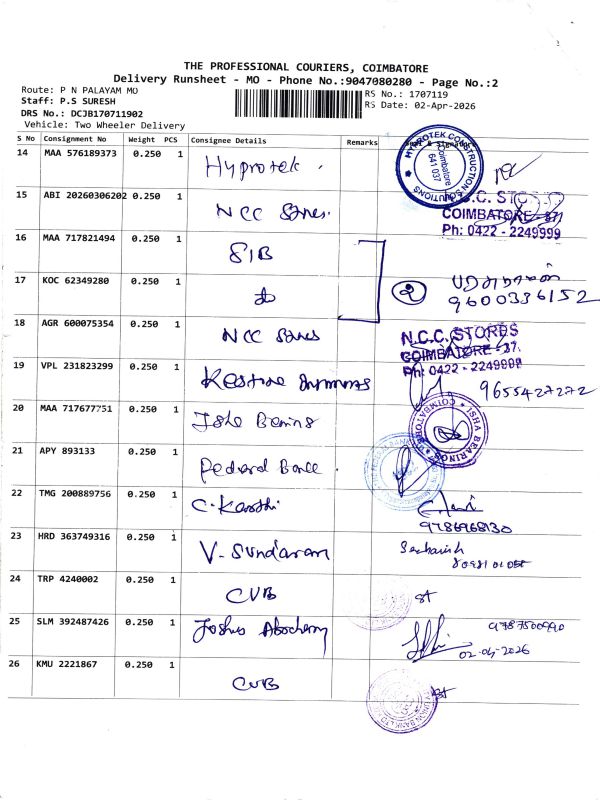 THE PROFESSIONAL COURIERS, COIMBATORE
Delivery Runsheet - MO - Phone No.:9047080280 - Page No.:2
Route: P N PALAYAM MO
RS No.: 1707119
Staff: P.S SURESH
RS Date: 02-Apr-2026
DRS No.: DCJB170711902
Vehicle: Two Wheeler Delivery
S No Consignment No Weight PCS Consignee Details Remarks
14 MAA 576189373 0.250 1 Hyprotek.
HYPROTEK CONSTRUCTION SOLUTIONS Coimbatore 641 037
15 ABI 20260306202 0.250 1 NCC Stores.
N.C.C. STORES
COIMBATORE - 37.
Ph: 0422 - 2249999
16 MAA 717821494 0.250 1 SIB
17 KOC 62349280 0.250 1 do
2
9600336152
18 AGR 600075354 0.250 1 NCC Stores
N.C.C. STORES
COIMBATORE - 37.
Ph: 0422 - 2249999
19 VPL 231823299 0.250 1
9655427272
20 MAA 717677751 0.250 1 Isha Bearings
ISHA BEARINGS COIMBATORE
21 APY 893133 0.250 1
22 TMG 200889756 0.250 1 C. Karthi
9786968130
23 HRD 363749316 0.250 1 V. Sundaram
24 TRP 4240002 0.250 1 CUB
25 SLM 392487426 0.250 1 Joshua
9787500990
02-04-2026
26 KMU 2221867 0.250 1 CUB